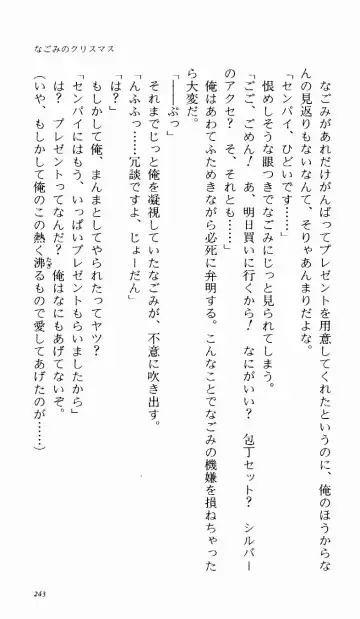 なごみのクリスマス
なごみがあれだけがんばってプレゼントを用意してくれたというのに、俺のほうからな
んの見返りもないなんて、そりゃあんまりだよな。
「センパイ、ひどいです……」
恨めしそうな眼つきでなごみにじっと見られてしまう。
「ごご、ごめん！　あ、明日買いに行くから！　なにがいい？　包丁セット？　シルバー
のアクセ？　そ、それとも……」
俺はあわてふためきながら必死に弁明する。こんなことでなごみの機嫌を損ねちゃった
ら大変だ。
「――ぷっ」
それまでじっと俺を凝視していたなごみが、不意に吹き出す。
「んふふっ……冗談ですよ、じょーだん」
「は？」
もしかして俺、まんまとしてやられたってヤツ？
「センパイにはもう、いっぱいプレゼントもらいましたから」
は？　プレゼントってなんだ？　俺はなにもあげてないぞ。
（いや、もしかして俺のこの熱く沸るもので愛してあげたのが……）
たぎ
243